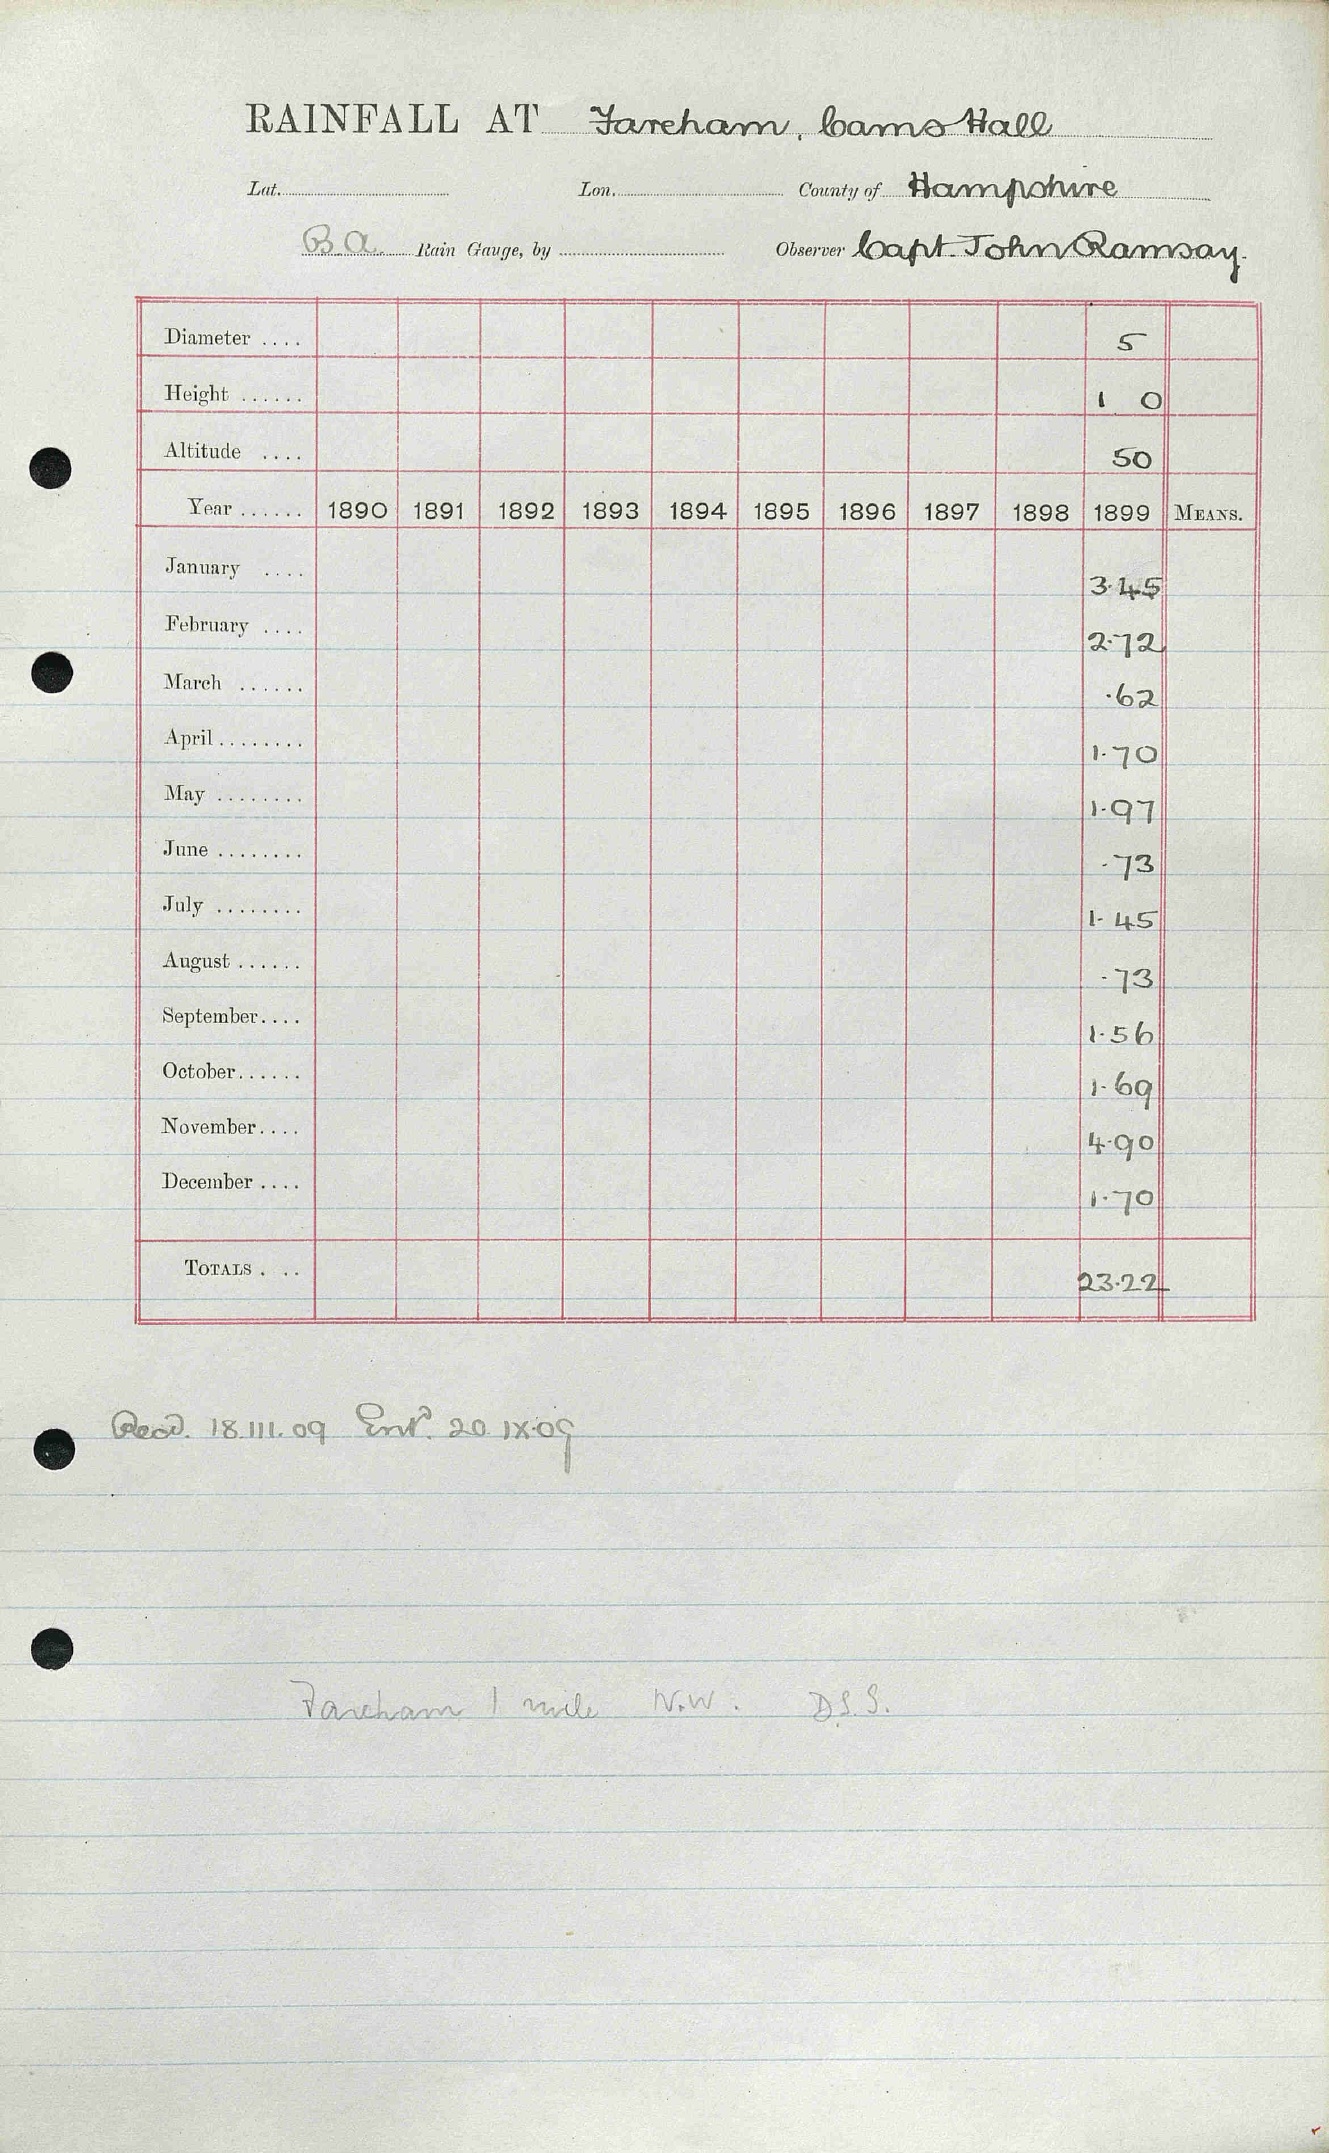 RAINFALL AT Fareham, Cams Hall
Lat. Lon. County of Hampshire
B.A. Rain Gauge, by Observer Capt. John Ramsay.
Diameter .... 5
Height ...... 1 0
Altitude .... 50
Year ...... 1890 1891 1892 1893 1894 1895 1896 1897 1898 1899 MEANS.
January .... 3.45
February .... 2.72
March ...... .62
April ........ 1.70
May ........ 1.97
June ........ .73
July ........ 1.45
August ...... .73
September.... 1.56
October...... 1.69
November.... 4.90
December .... 1.70
TOTALS . .. 23.22
Recd. 18.III.09 Entd. 20.IX.09
Fareham 1 mile N.W. D.S.S.